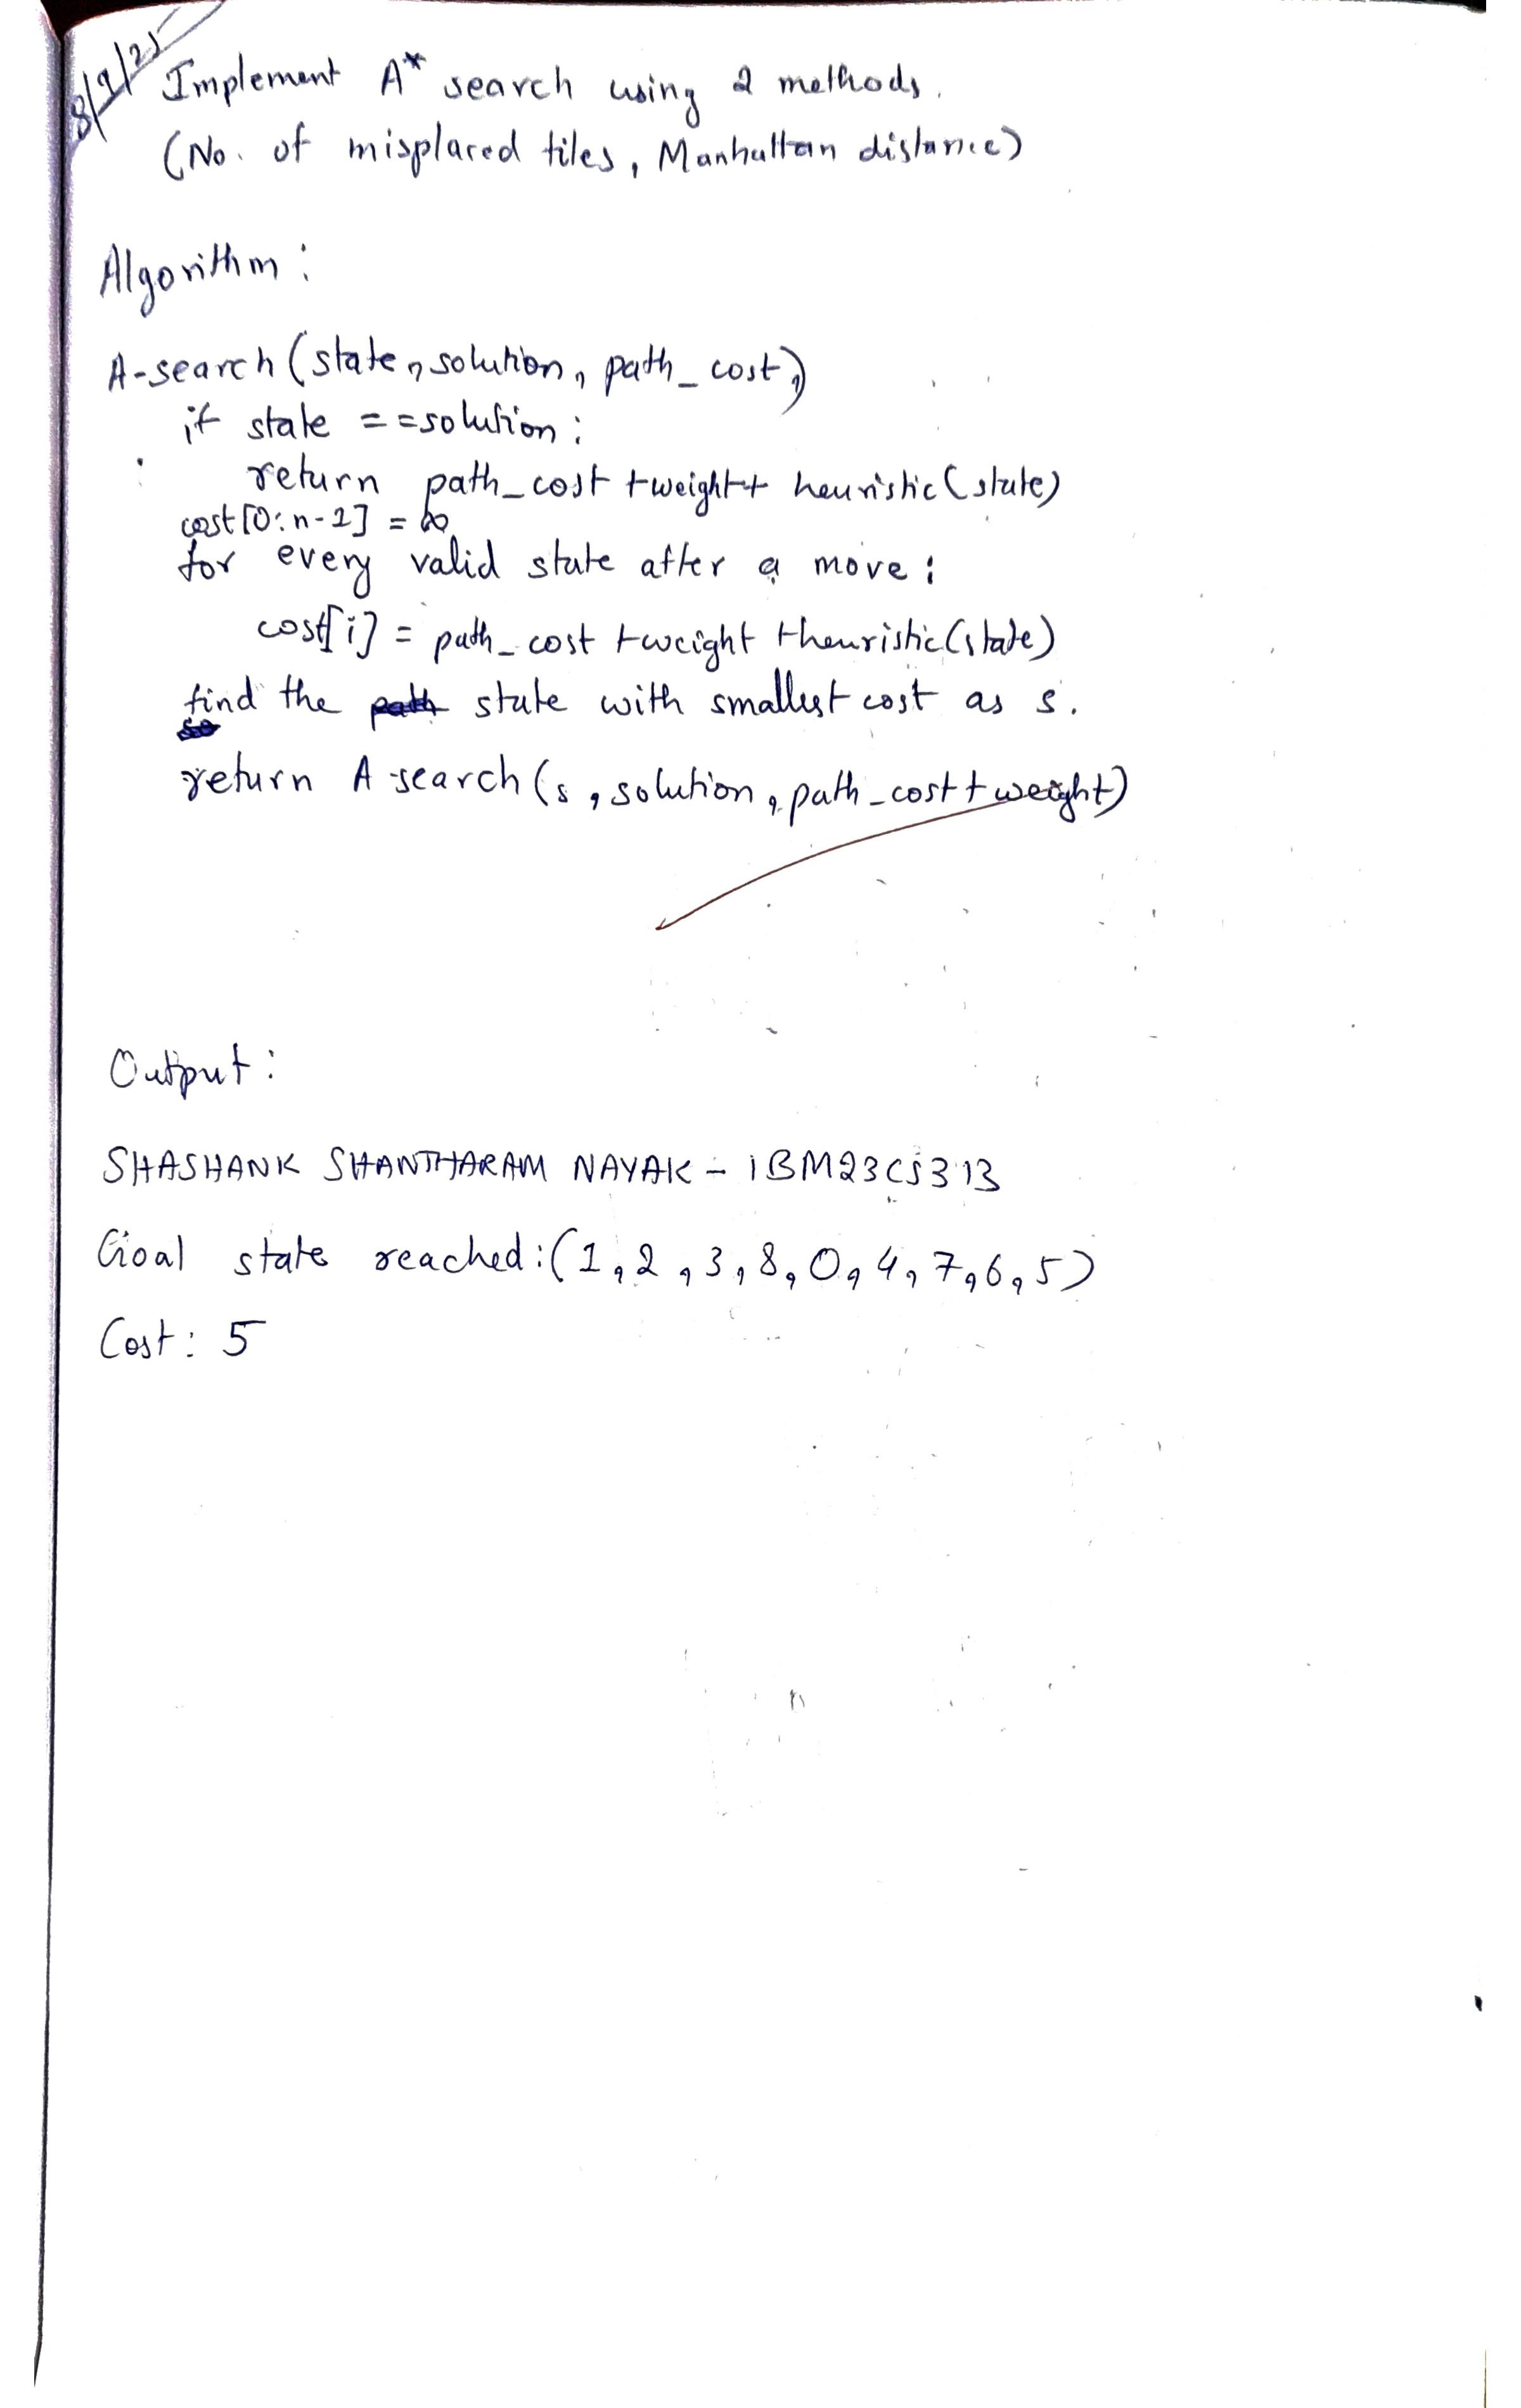 8/9/25
Implement A* search using 2 methods.
(No. of misplaced tiles, Manhattan distance)
Algorithm:
A-search (state, solution, path_cost)
if state == solution:
return path_cost + weight + heuristic (state)
cost[0:n-1] = ∞
for every valid state after a move:
cost[i] = path_cost + weight + heuristic (state)
find the state with smallest cost as s.
return A-search (s, solution, path_cost + weight)
Output:
SHASHANK SHANTHARAM NAYAK - 1BM23CS313
Goal state reached: (1, 2, 3, 8, 0, 4, 7, 6, 5)
Cost: 5